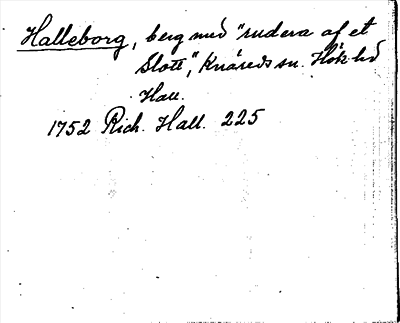 Halleborg, berg med "rudera af et
Slott", Knäreds sn. Höks hd
Hall.
1752 Rich. Hall. 225